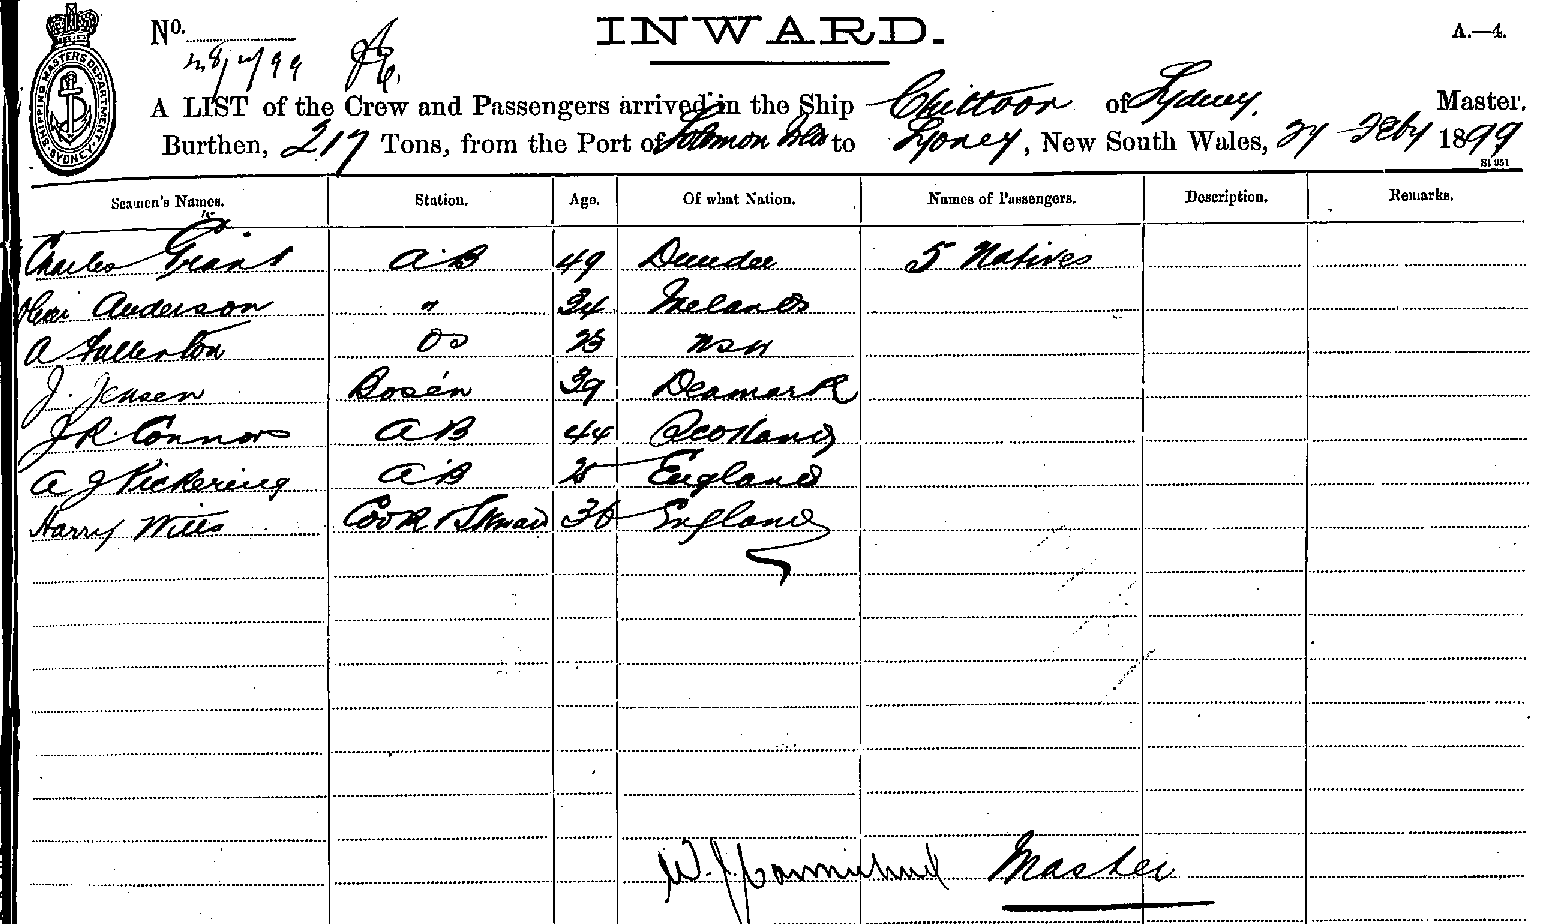 No.
INWARD.
A.—4.
28/2/99
SHIPPING MASTERS DEPARTMENT SYDNEY
A LIST of the Crew and Passengers arrived in the Ship Chittoor of Sydney. Master,
Burthen, 217 Tons, from the Port of Solomon Isles to Sydney, New South Wales, 27 Feby 1899
Seamen's Names. Station. Age. Of what Nation. Names of Passengers. Description. Remarks.
Charles Grant AB 49 Dundee 5 Natives
Anderson " 34
A Fullerton OS 23 NSW
J. Jensen Bosen 39 Denmark
J R Connors AB 44 Scotland
A J Pickering AB 25 England
Harry Wills Cook & Steward 36 England
W. J. Carmichael Master